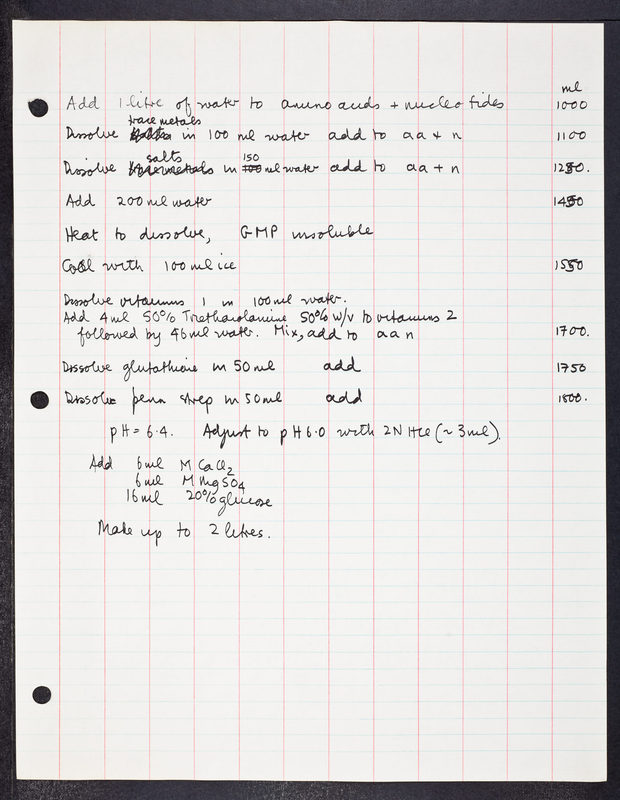 ml
Add 1 litre of water to amino acids + nucleotides 1000
trace metals
Dissolve salts in 100 ml water add to aa + n 1100
salts 150
Dissolve trace metals in 100 ml water add to aa + n 1250.
Add 200 ml water 1450
Heat to dissolve, GMP insoluble
Cool with 100 ml ice 1550
Dissolve vitamins 1 in 100 ml water.
Add 4 ml 50% Triethanolamine 50% w/v to vitamins 2
followed by 46 ml water. Mix, add to aa n 1700.
Dissolve glutathione in 50 ml add 1750
Dissolve penn strep in 50 ml add 1800.
pH = 6.4. Adjust to pH 6.0 with 2N HCl (~ 3 ml).
Add 6 ml M CaCl2
6 ml M MgSO4
16 ml 20% glucose
Make up to 2 litres.